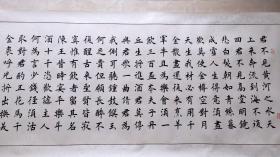 君不見黃河之水天
上來奔流到海不復
回君不見高堂明鏡
悲白髮朝如青絲暮
成雪人生得意須盡
歡莫使金樽空對月
天生我材必有用千
金散盡還復來烹羊
宰牛且為樂會須一
飲三百杯岑夫子丹
丘生將進酒君莫停
與君歌一曲請君為
我傾耳聽鐘鼓饌玉
不足貴但願長醉不
復醒古來聖賢皆寂
寞惟有飲者留其名
陳王昔時宴平樂斗
酒十千恣歡謔主人
何為言少錢徑須沽
取對君酌五花馬千
金裘呼兒將出換美